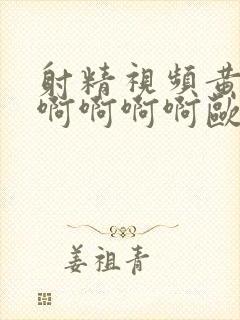 射精視頻黃
啊啊啊啊歐
姜祖青